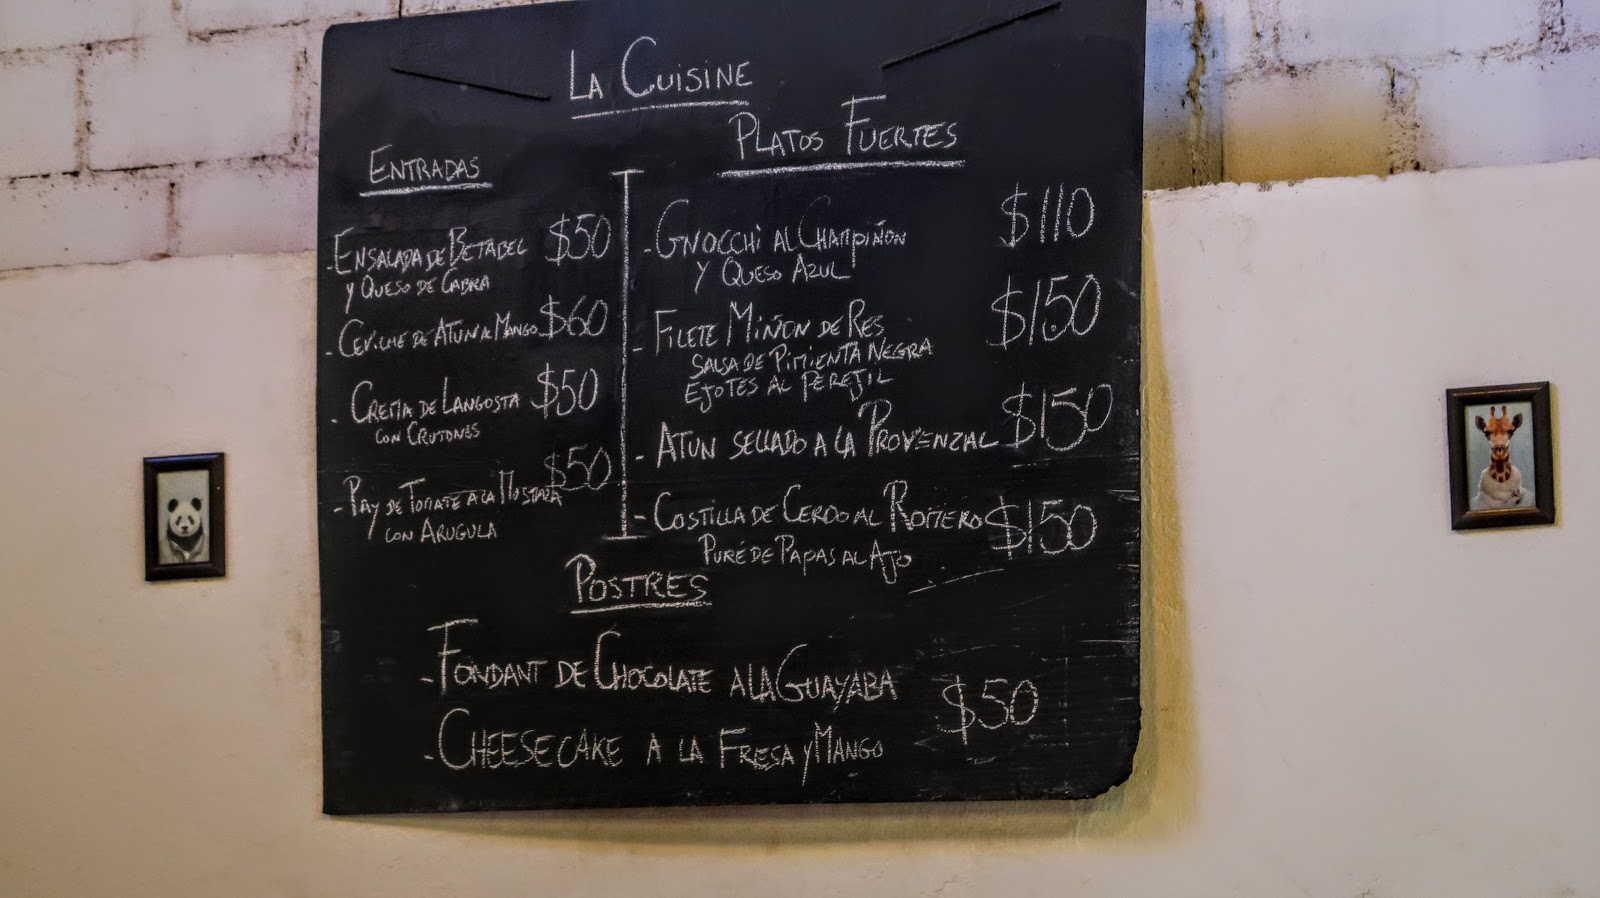 LA CUISINE
ENTRADAS
-ENSALADA DE BETABEL $50
Y QUESO DE CABRA
-CEVICHE DE ATUN AL MANGO $60
-CREMA DE LANGOSTA $50
CON CRUTONES
-PAY DE TOMATE A LA MOSTAZA $50
CON ARUGULA
PLATOS FUERTES
-GNOCCHI AL CHAMPIÑON $110
Y QUESO AZUL
-FILETE MIÑON DE RES $150
SALSA DE PIMIENTA NEGRA
EJOTES AL PEREJIL
-ATUN SELLADO A LA PROVENZAL $150
-COSTILLA DE CERDO AL ROMERO $150
PURÉ DE PAPAS AL AJO
POSTRES
-FONDANT DE CHOCOLATE A LA GUAYABA $50
-CHEESECAKE A LA FRESA Y MANGO